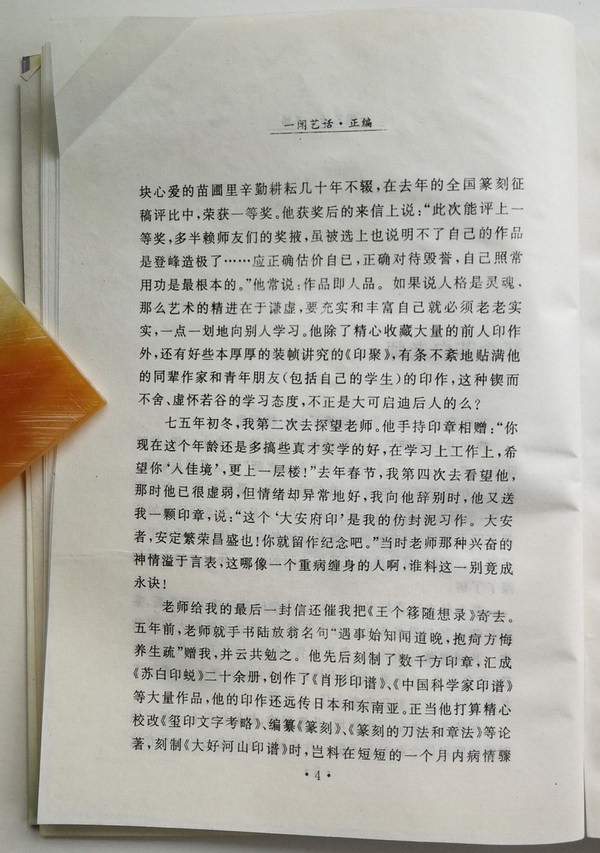 一闻艺话·正编
块心爱的苗圃里辛勤耕耘几十年不辍，在去年的全国篆刻征
稿评比中，荣获一等奖。他获奖后的来信上说：“此次能评上一
等奖，多半赖师友们的奖掖，虽被选上也说明不了自己的作品
是登峰造极了……应正确估价自己，正确对待毁誉，自己照常
用功是最根本的。”他常说：作品即人品。如果说人格是灵魂，
那么艺术的精进在于谦虚，要充实和丰富自己就必须老老实
实，一点一划地向别人学习。他除了精心收藏大量的前人印作
外，还有好些本厚厚的装帧讲究的《印聚》，有条不紊地贴满他
的同辈作家和青年朋友（包括自己的学生）的印作，这种锲而
不舍、虚怀若谷的学习态度，不正是大可启迪后人的么？
七五年初冬，我第二次去探望老师。他手持印章相赠：“你
现在这个年龄还是多搞些真才实学的好，在学习上工作上，希
望你‘入佳境’，更上一层楼！”去年春节，我第四次去看望他，
那时他已很虚弱，但情绪却异常地好，我向他辞别时，他又送
我一颗印章，说：“这个‘大安府印’是我的仿封泥习作。大安
者，安定繁荣昌盛也！你就留作纪念吧。”当时老师那种兴奋的
神情溢于言表，这哪像一个重病缠身的人啊，谁料这一别竟成
永诀！
老师给我的最后一封信还催我把《王个簃随想录》寄去。
五年前，老师就手书陆放翁名句“遇事始知闻道晚，抱疴方悔
养生疏”赠我，并云共勉之。他先后刻制了数千方印章，汇成
《苏白印蜕》二十余册，创作了《肖形印谱》、《中国科学家印谱》
等大量作品，他的印作还远传日本和东南亚。正当他打算精心
校改《玺印文字考略》、编纂《篆刻》、《篆刻的刀法和章法》等论
著，刻制《大好河山印谱》时，岂料在短短的一个月内病情骤
·4·